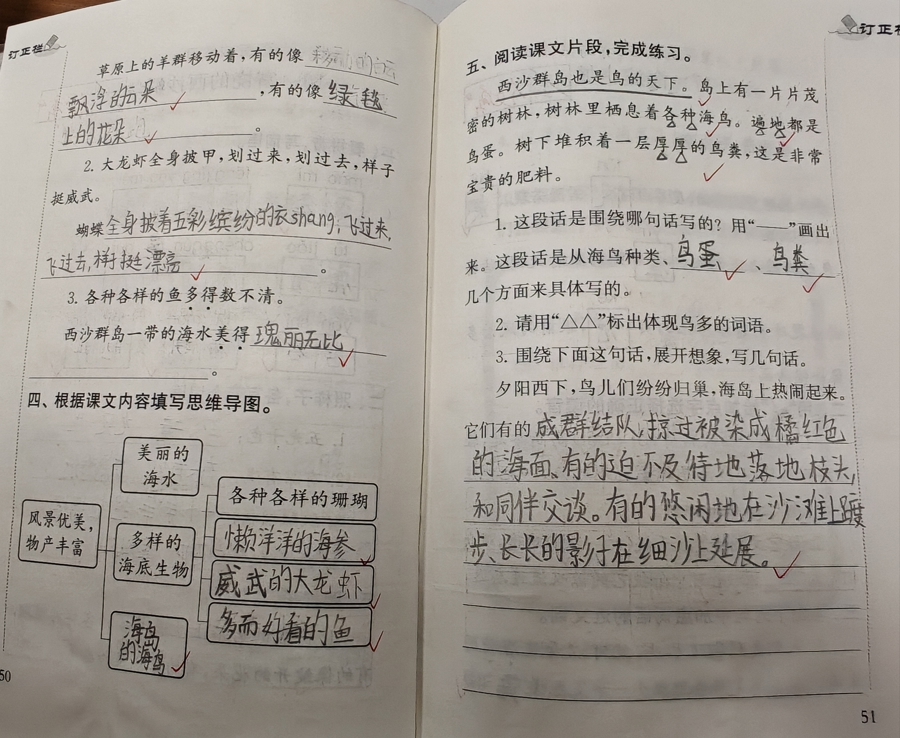 订正栏
草原上的羊群移动着，有的像
飘浮的云朵，有的像绿毯
上的花朵。
2. 大龙虾全身披甲，划过来，划过去，样子
挺威武。
蝴蝶全身披着五彩缤纷的衣shang，飞过来，
飞过去，样子挺漂亮。
3. 各种各样的鱼多得数不清。
西沙群岛一带的海水美得瑰丽无比
。
四、根据课文内容填写思维导图。
风景优美，
物产丰富
美丽的
海水
多样的
海底生物
海岛
的海鸟
各种各样的珊瑚
懒洋洋的海参
威武的大龙虾
多而好看的鱼
50
订正栏
五、阅读课文片段，完成练习。
西沙群岛也是鸟的天下。岛上有一片片茂
密的树林，树林里栖息着各种海鸟。遍地都是
鸟蛋。树下堆积着一层厚厚的鸟粪，这是非常
宝贵的肥料。
1. 这段话是围绕哪句话写的？用“——”画出
来。这段话是从海鸟种类、鸟蛋、鸟粪
几个方面来具体写的。
2. 请用“△△”标出体现鸟多的词语。
3. 围绕下面这句话，展开想象，写几句话。
夕阳西下，鸟儿们纷纷归巢，海岛上热闹起来。
它们有的成群结队，掠过被染成橘红色
的海面、有的迫不及待地落地枝头，
和同伴交谈。有的悠闲地在沙滩上踱
步，长长的影子在细沙上延展。
51